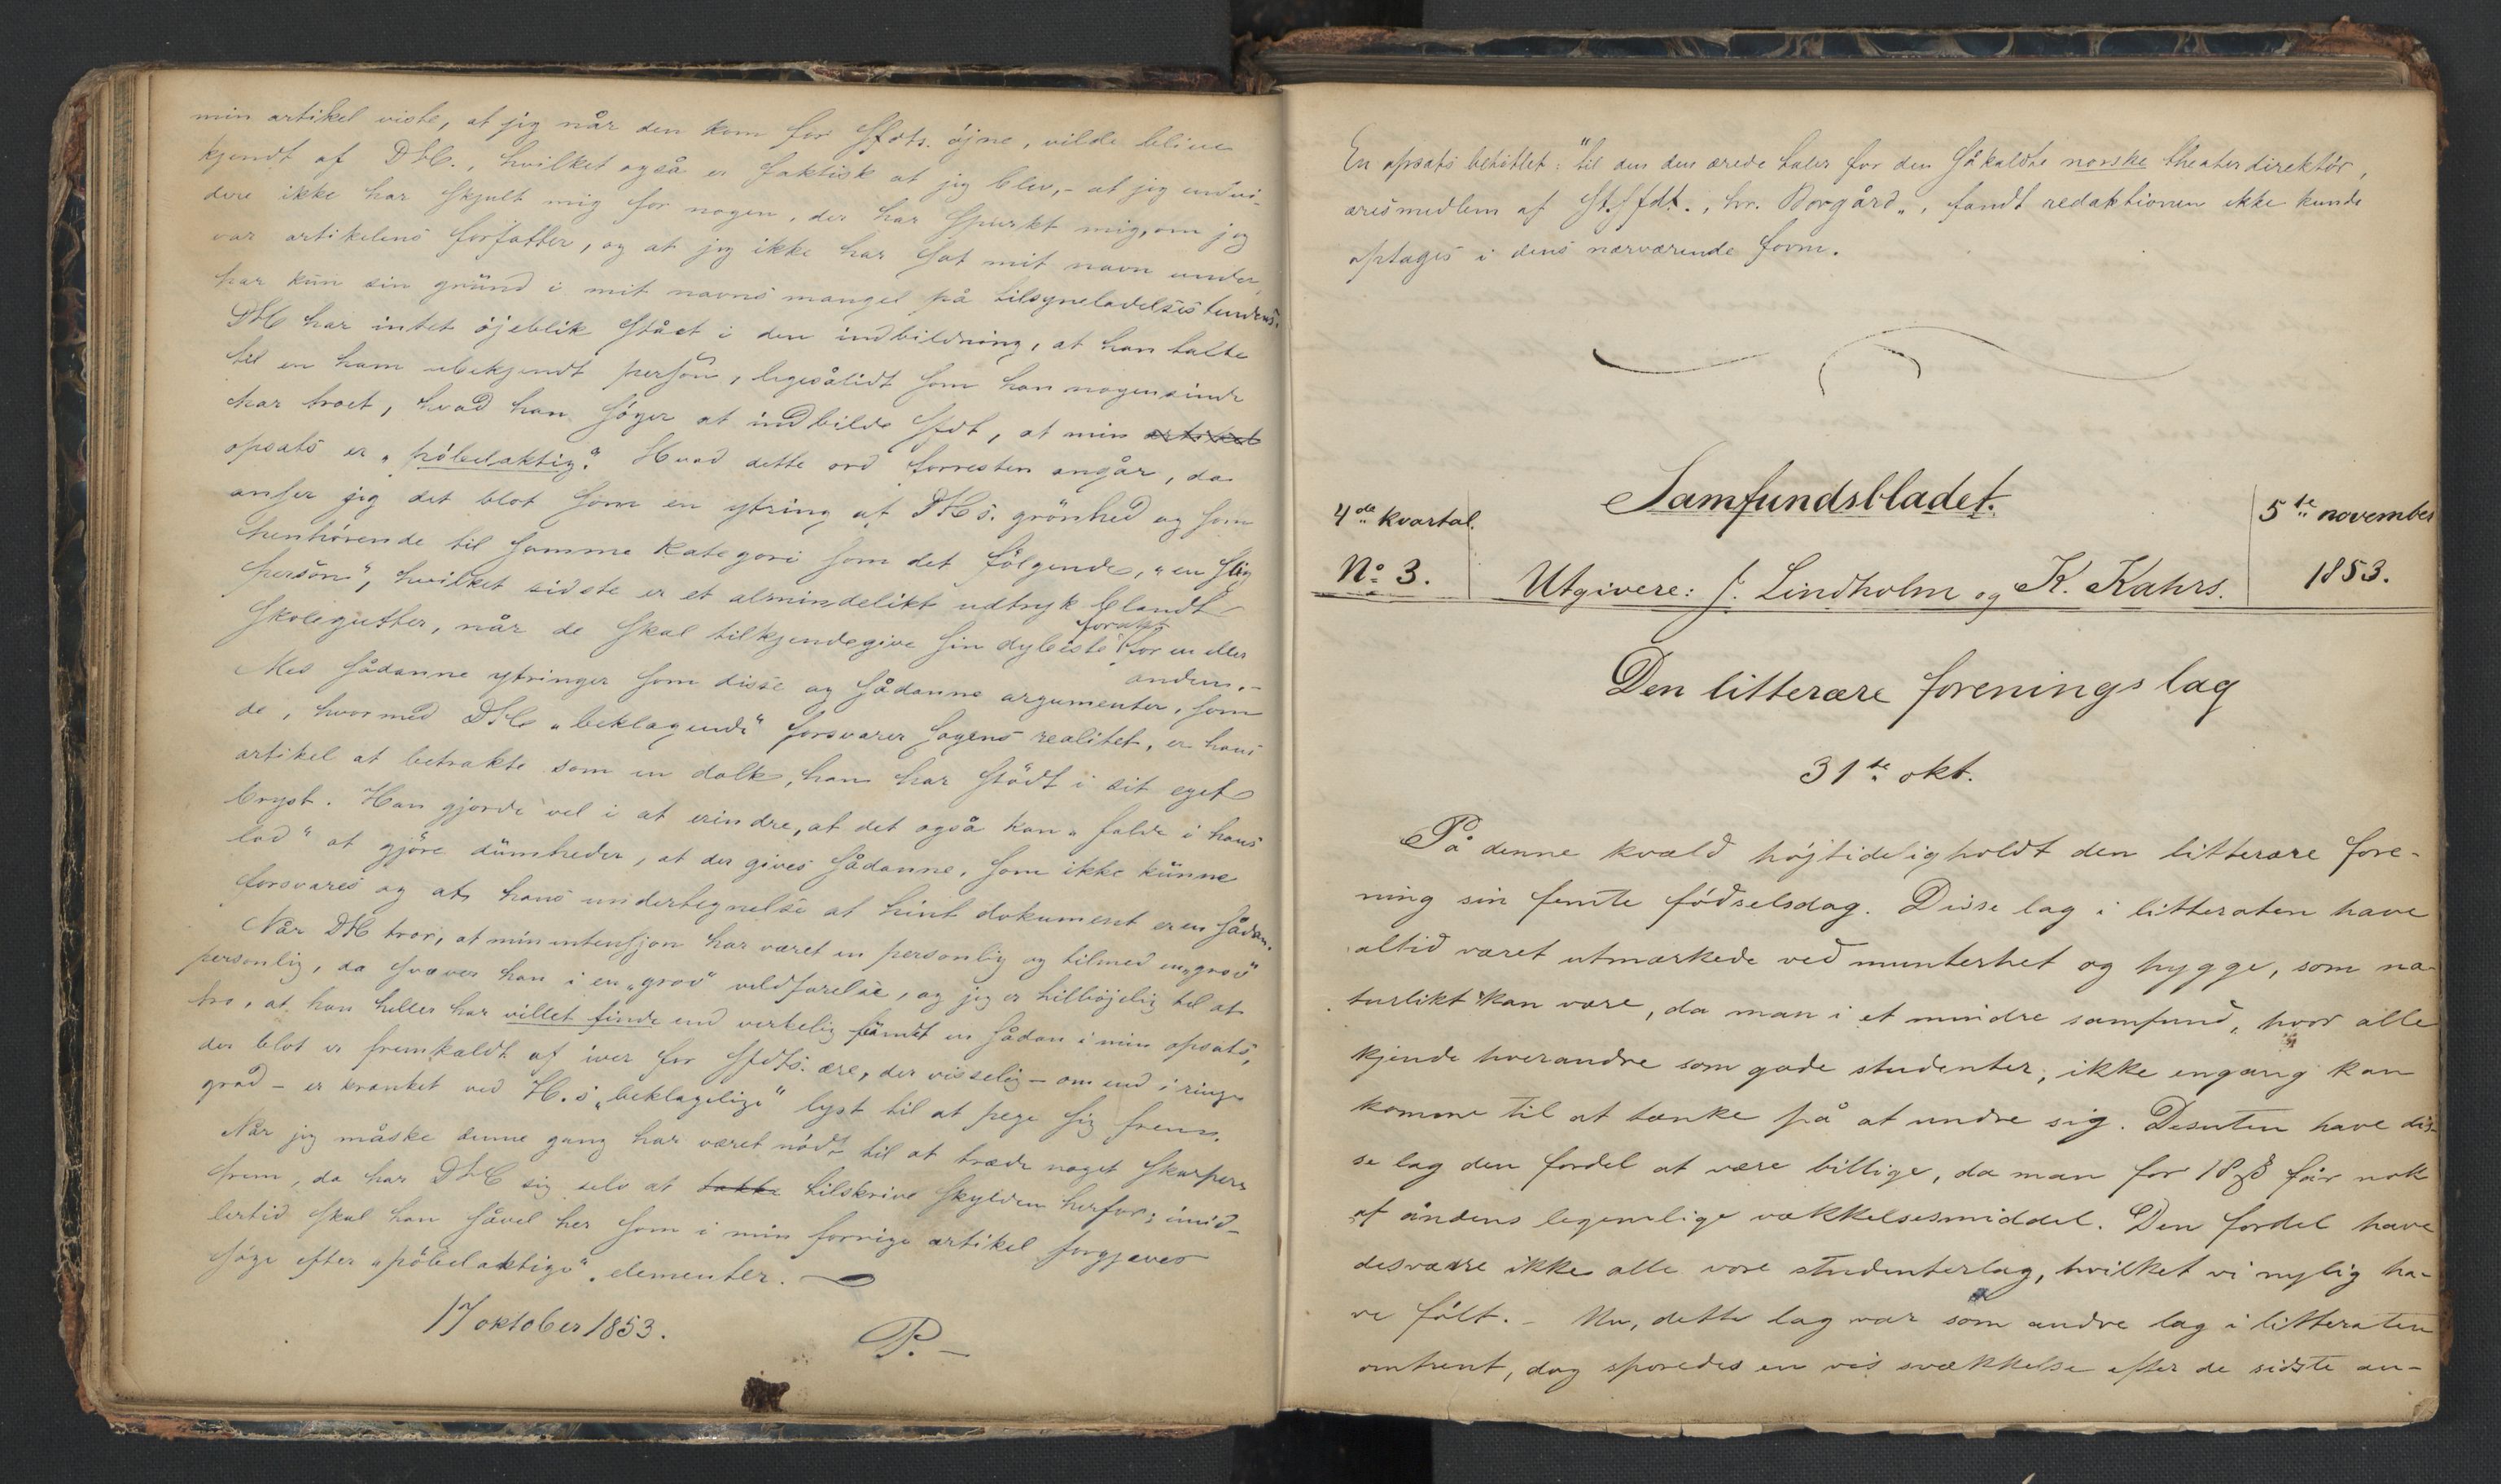 min artikel viste, at jig når den kom for Sfdts. øjne, vilde blive
kjendt af DHC., hvilket også er faktisk at jig blev, – at jig endvi-
dere ikke har skjult mig for nogen, der har spurkt mig, om jig
var artikelens forfatter, og at jig ikke har sat mit navn under,
har kun sin grund i mit navns mangel på tilsyneladelsestendens.
DHC har intet øjeblik stået i den indbildning, at han talte
til en ham ubekjendt person, ligesålidt som han nogensinde
har troet, hvad han søger at indbilde Sfdt, at min artikel
opsats er „pöbelaktig“. Hvad dette ord forresten angår, da
anser jig det blot som en ytring af DHCs. grönhed og som
henhörende til samme kategori som det fölgende, „en slig
person“, hvilket sidste er et almindelikt udtryk blandt
skolegutter, når de skal tilkjendegive sin dybeste forakt for en eller
anden. –
Med sådanne ytringer som disse og sådanne argumenter, som
de, hvormed DHC „beklagende“ forsvarer sagens realitet, er hans
artikel at betrakte som en dolk, han har stödt i sit eget
bryst. Han gjorde vel i at erindre, at det også kan „falde i hans
lod“ at gjöre dumheder, at der gives sådanne, som ikke kunne
forsvares og at hans undertegnelse af hint dokument er en sådan.
Når DHC tror, at min intensjon har været en personlig og tilmed en „grov“
personlig, da svæver han i en „grov“ vildfarelse, og jig er tilböjelig til at
tro, at han heller har villet finde end verkelig fundet en sådan i min opsats,
der blot er fremkaldt af iver for Sfdts. ære, der visselig – om end i ringe
grad – er krænket ved H.s „beklagelige“ lyst til at pege sig frem.
Når jig måske denne gang har været nödt til at træde noget skarpere
frem, da har DHC sig selv at takke tilskrive skylden herfor; imid-
lertid skal han såvel her som i min forrige artikel forgjæves
söge efter „pöbelaktige“ elementer.
17 oktober 1853.
P. –
En opsats betitlet: "til den den ærede taler for den såkaldte norske theaterdirektör,
æresmedlem af St.Sfdt., hr. Borgård„, fandt redaktionen ikke kunde
optages i dens nærværende form.
Samfundsbladet.
4de kvartal.
No 3.
5te november
1853.
Utgivere: J. Lindholm og K. Kahrs.
Den litterære forenings lag
31te okt.
På denne kvæld højtideligholdt den litterære fore-
ning sin femte födselsdag. Disse lag i litteraten have
altid været utmærkede ved munterhet og hygge, som na-
turlikt kan være, da man i et mindre samfund, hvor alle
kjende hverandre som gode studenter, ikke engang kan
komme til at tænke på at undre sig. Desuten have dis-
se lag den fordel at være billige, da man for 18 ß får nok
af åndens legemlige vækkelsesmiddel. Den fordel have
desværre ikke alle vore studenterlag, hvilket vi nylig ha-
ve fölt. – Nu, dette lag var som andre lag i litteraten
omtrent, dog sporedes en vis svækkelse efter de sidste an-